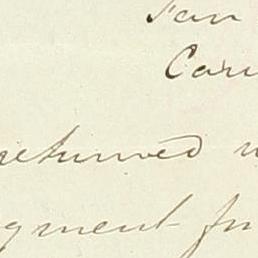 Fan
Caru
returned w
gment fr